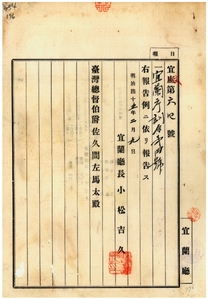 日報
宜庶第六四號
一宜蘭廳報第百四號
右報告例ニ依リ報告ス
明治四十五年二月九日
宜蘭廳長 小松吉久
臺灣總督伯爵佐久間左馬太殿
宜蘭廳